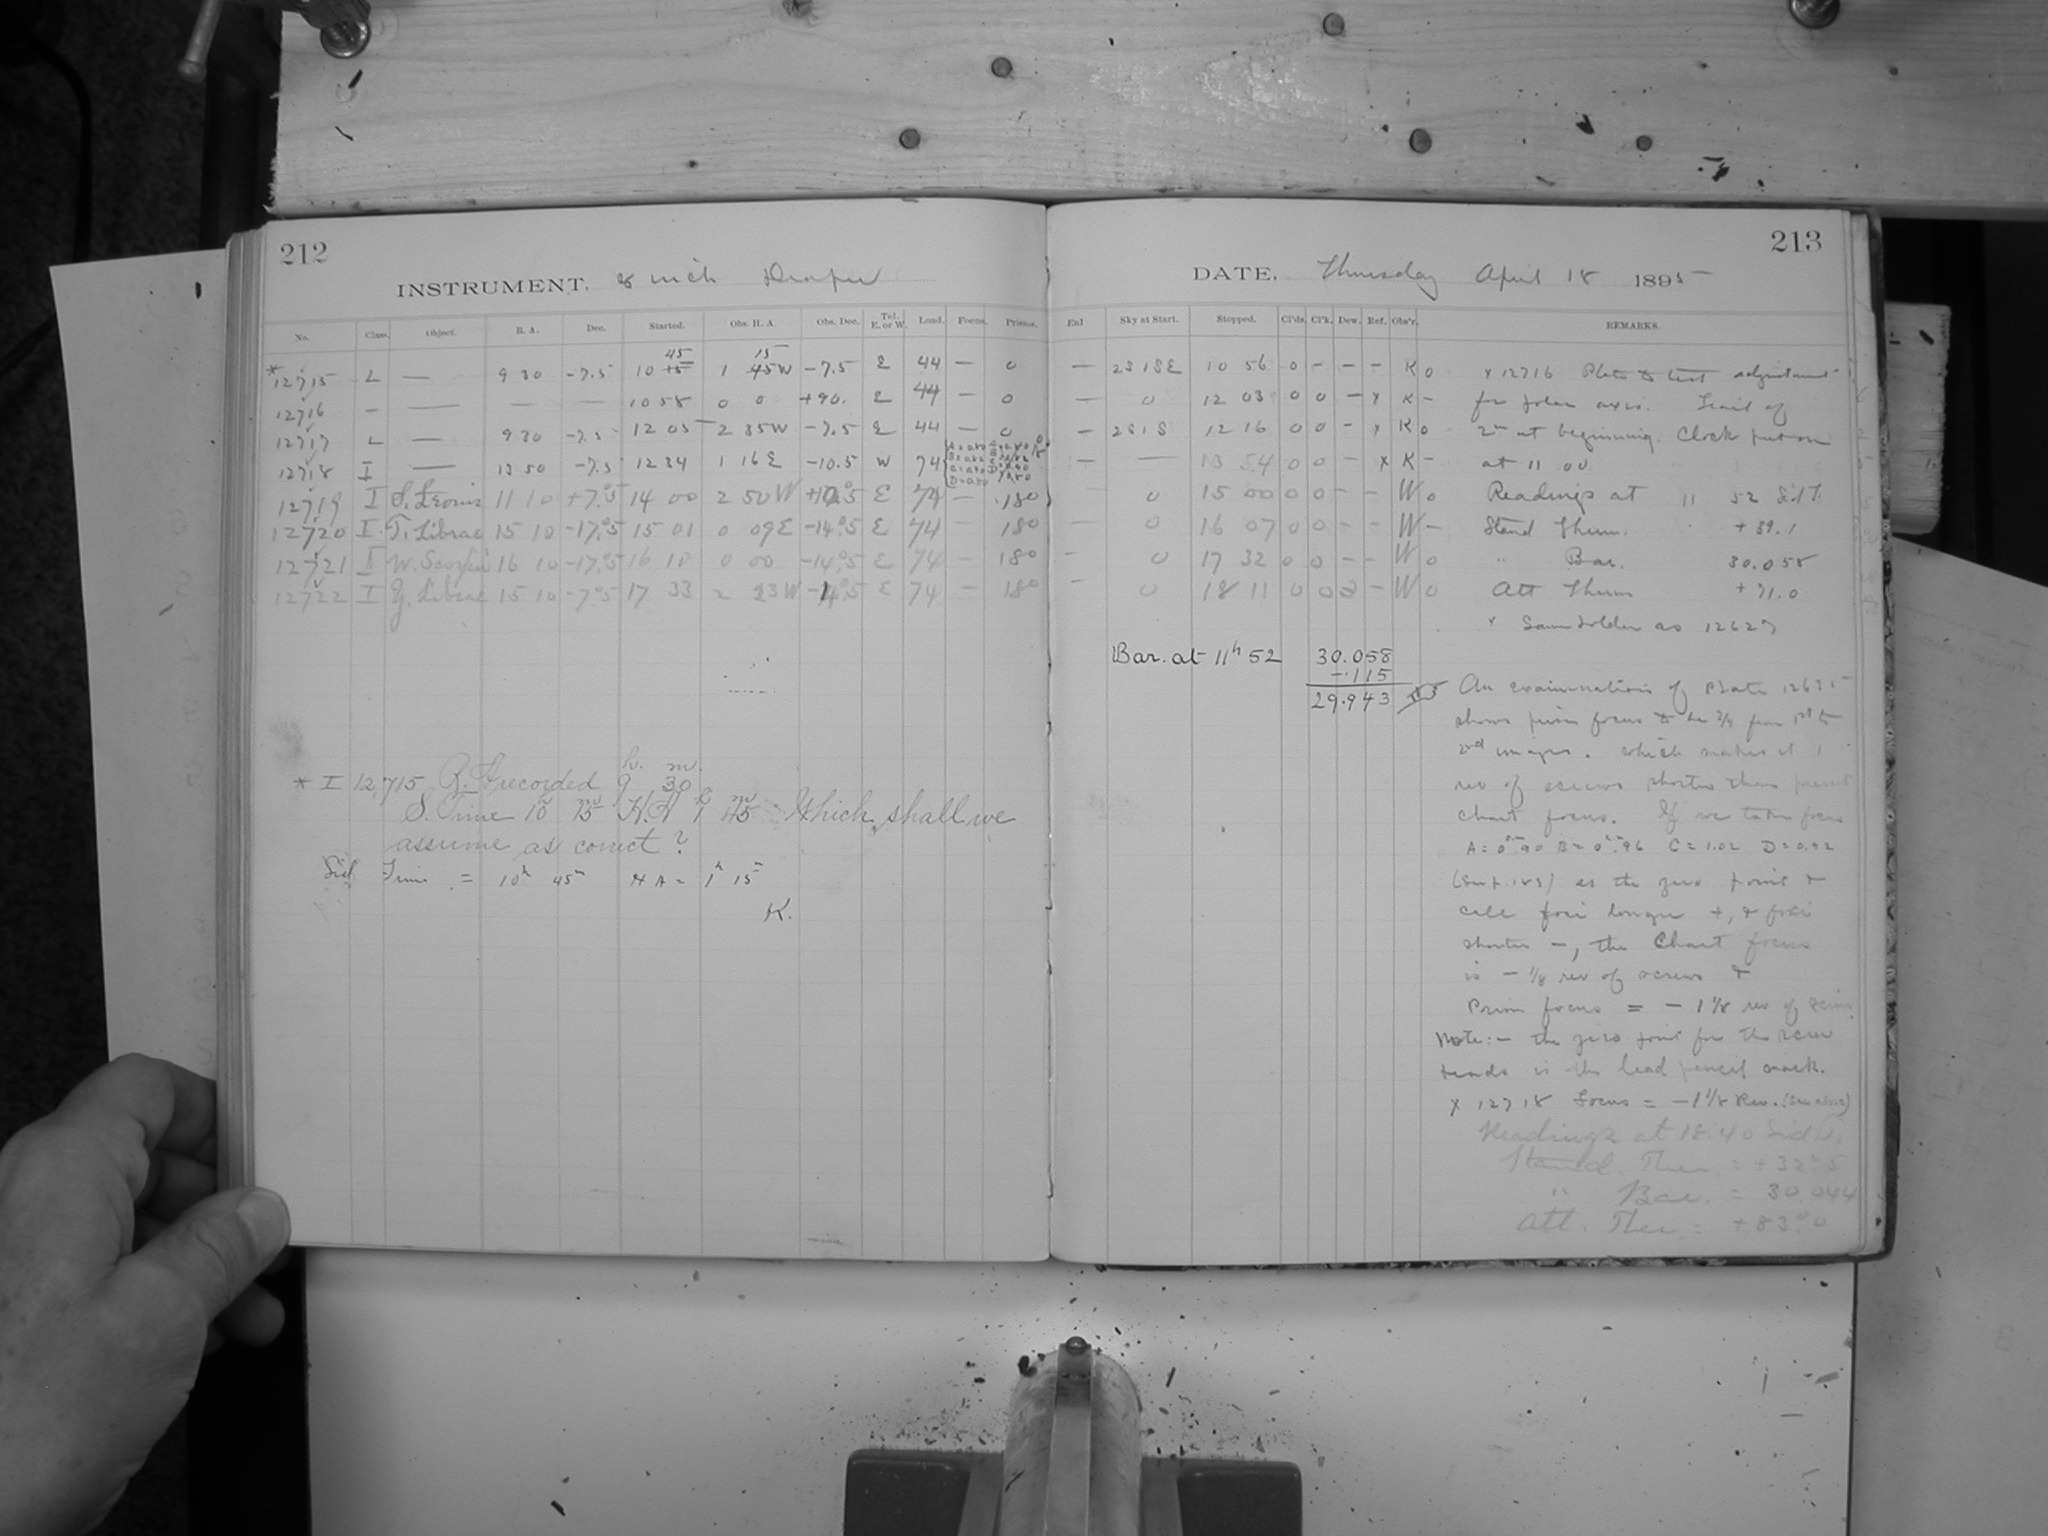 212
INSTRUMENT, 8 inch Draper
No. Class. Object. R. A. Dec. Started. Obs. H. A. Obs. Dec. Tel. E. or W. Load. Focus. Prisms.
* 12715 L — 9 30 -7.5 10 15 45 1 45 W 15 -7.5 E 44 — 0
12716 — — — — 10 58 0 0 +90. E 44 — 0
12717 L — 9 30 -7.5 12 05 2 35 W -7.5 E 44 — 0
12718 I — 13 50 -7.5 12 34 1 16 E -10.5 W 74
12719 I S. Leonis 11 10 +7°.5 14 00 2 50 W +10°.5 E 74 — 180
12720 I T. Librae 15 10 -17°.5 15 01 0 09 E -14°.5 E 74 — 180
12721 I W. Scorpii 16 10 -17°.5 16 10 0 00 -14°.5 E 74 — 180
12722 I Y. Librae 15 10 -7°.5 17 33 2 23 W -4°.5 E 74 — 180
* I 12,715 R. A recorded 9 h. 30 m.
S. Time 10 h 15 m H.A 1 h 45 m Which shall we
assume as correct?
Sid Time = 10h 45m H A = 1h 15
K.
213
DATE, Thursday April 18 1895
Enl Sky at Start. Stopped. Cl'ds. Cl'k. Dew. Ref. Obs'r. REMARKS.
— 2S1SE 10 56 0 - - - K 0
— 0 12 03 0 0 — x K -
— 2S1S 12 16 0 0 - x K 0
— — 13 54 0 0 - x K -
0 15 00 0 0 - - W 0
— 0 16 07 0 0 - - W -
- 0 17 32 0 0 - - W 0
- 0 18 11 0 0 2 - W 0
Bar. at 11h 52 30.058
-.115
29.943
x 12716 Plate to test adjustment
for polar axis. Trail of
2m at beginning. Clock put on
at 11 00
Readings at 11 52 Sid T.
Stand Therm. +39.1
" Bar. 30.058
Att Therm +71.0
x Same holder as 12627
An examination of Plate
shows prism focus to be 3/4 from 1st to
2nd images. which makes it 1
rev of screws shorter than present
chart focus. If we take focus
A = 0in.90 B = 0in.96 C = 1.02 D = 0.92
(See p. 183) as the zero point &
call foci longer +, & foci
shorter -, the Chart focus
is - 1/8 rev of screws &
Prism focus = - 1 1/8 rev of screws.
Note:- the zero point for the screw
heads is the lead pencil mark.
x 12718 Focus = -1 1/8 Rev. (See above)
Readings at 18.40 Sid T.
Stand. Ther. = +32°.5
" Bar. = 30.044
Att. Ther = +83°.0